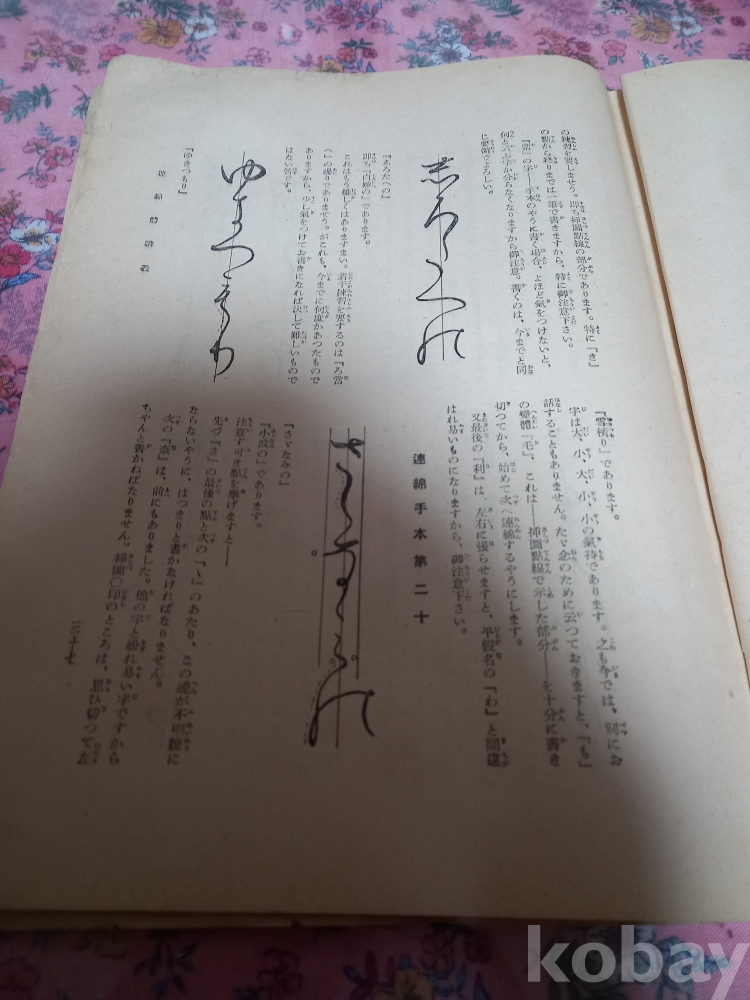 の練習を要しませう。即ち挿圖點線の部分であります。特に『き』
の點から終りまでは一筆で書きますから、特に御注意下さい。
『雲』の字——手本のやうに書く場合、よほど氣をつけないと、
何と云ふ字か分らなくなりますから御注意。書くのは、今までと同
じ要領でよろしい。
『志ろたへの』
即ち『白妙の』であります。
これはさう難しくはありますまい。若干練習を要するのは『ろ當
へ』の連りでありませう。がこれも、今までに何度かあつたもので
ありますから、少し氣をつけてお書きになれば決して難しいもので
はない筈です。
『ゆきつもり』
連綿體講義
『雪積り』であります。
字は大、小、大、小、小の氣持であります。之も今では、別にお
話することもありません。たゞ念のために云つておきますと、『も』
の變體『毛』、これは——挿圖點線で示した部分——を十分に書き
切つてから、始めて次へ連綿するやうにします。
又最後の『利』は、左右に張らせますと、平假名の『わ』と間違
はれ易いものになりますから、御注意下さい。
連綿手本第二十
『さゞなみの』
『小波の』であります。
注意す可き點を擧げますと——
先づ『さ』の最後の點と次の『ゝ』のあたり、この邊が不明瞭に
ならないやうに、はつきりと書かなければなりません。
次の『奈』は、前にもありました。他の字と紛れ易い字ですから
ちやんと書かねばなりません。挿圖〇印のところは、思ひ切つて左
三十七
kobay